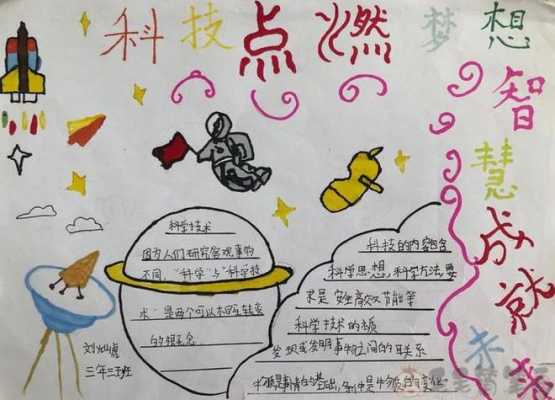 科技点燃梦想
智慧成就未来
科学技术
因为人们研究客观事物
不同，“科学”与“科学技
术”是两个可以相互转变
的概念
科技的内容包含
科学思想 科学方法 要
求是 安全高效节能等
科学技术的本质
发现或发明事物之间的联系
三年三班